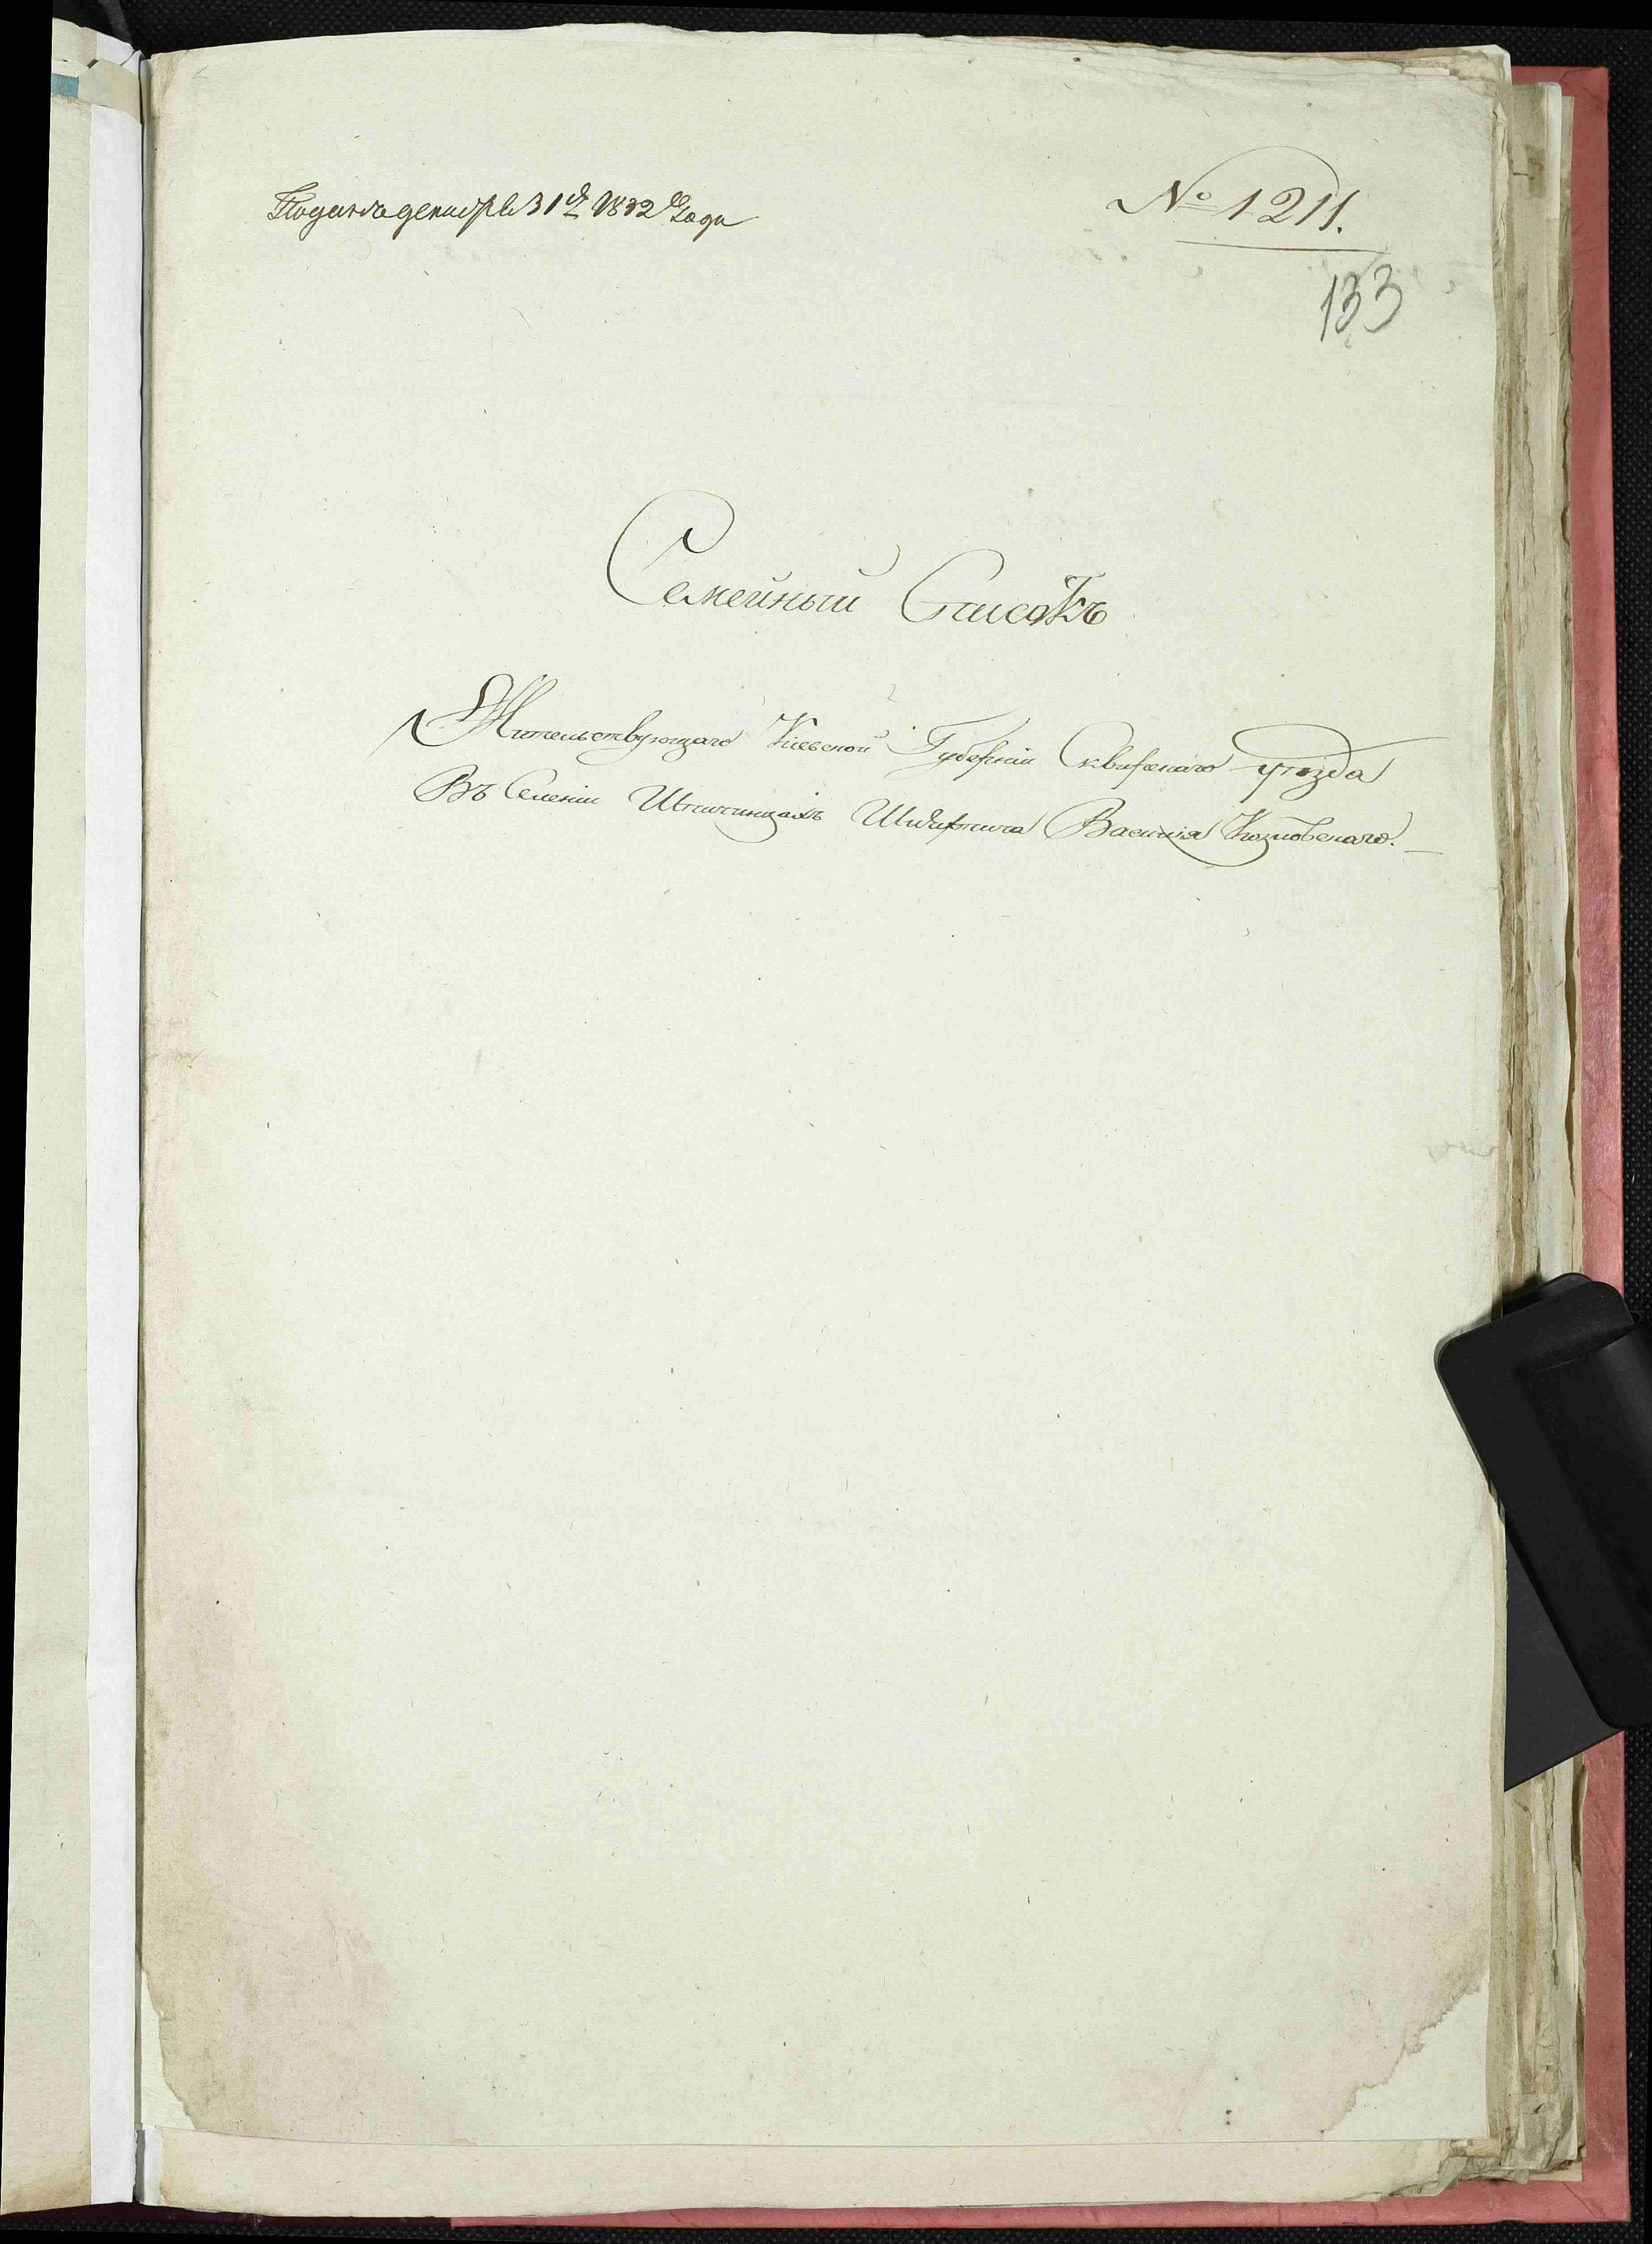 Подан декабря 31 д 1832 го года
№ 1211.
133
Семейный Списокъ
Жительствующаго Киевской Губернии Сквирскаго уезда
Въ Селении Василия Козловскаго.